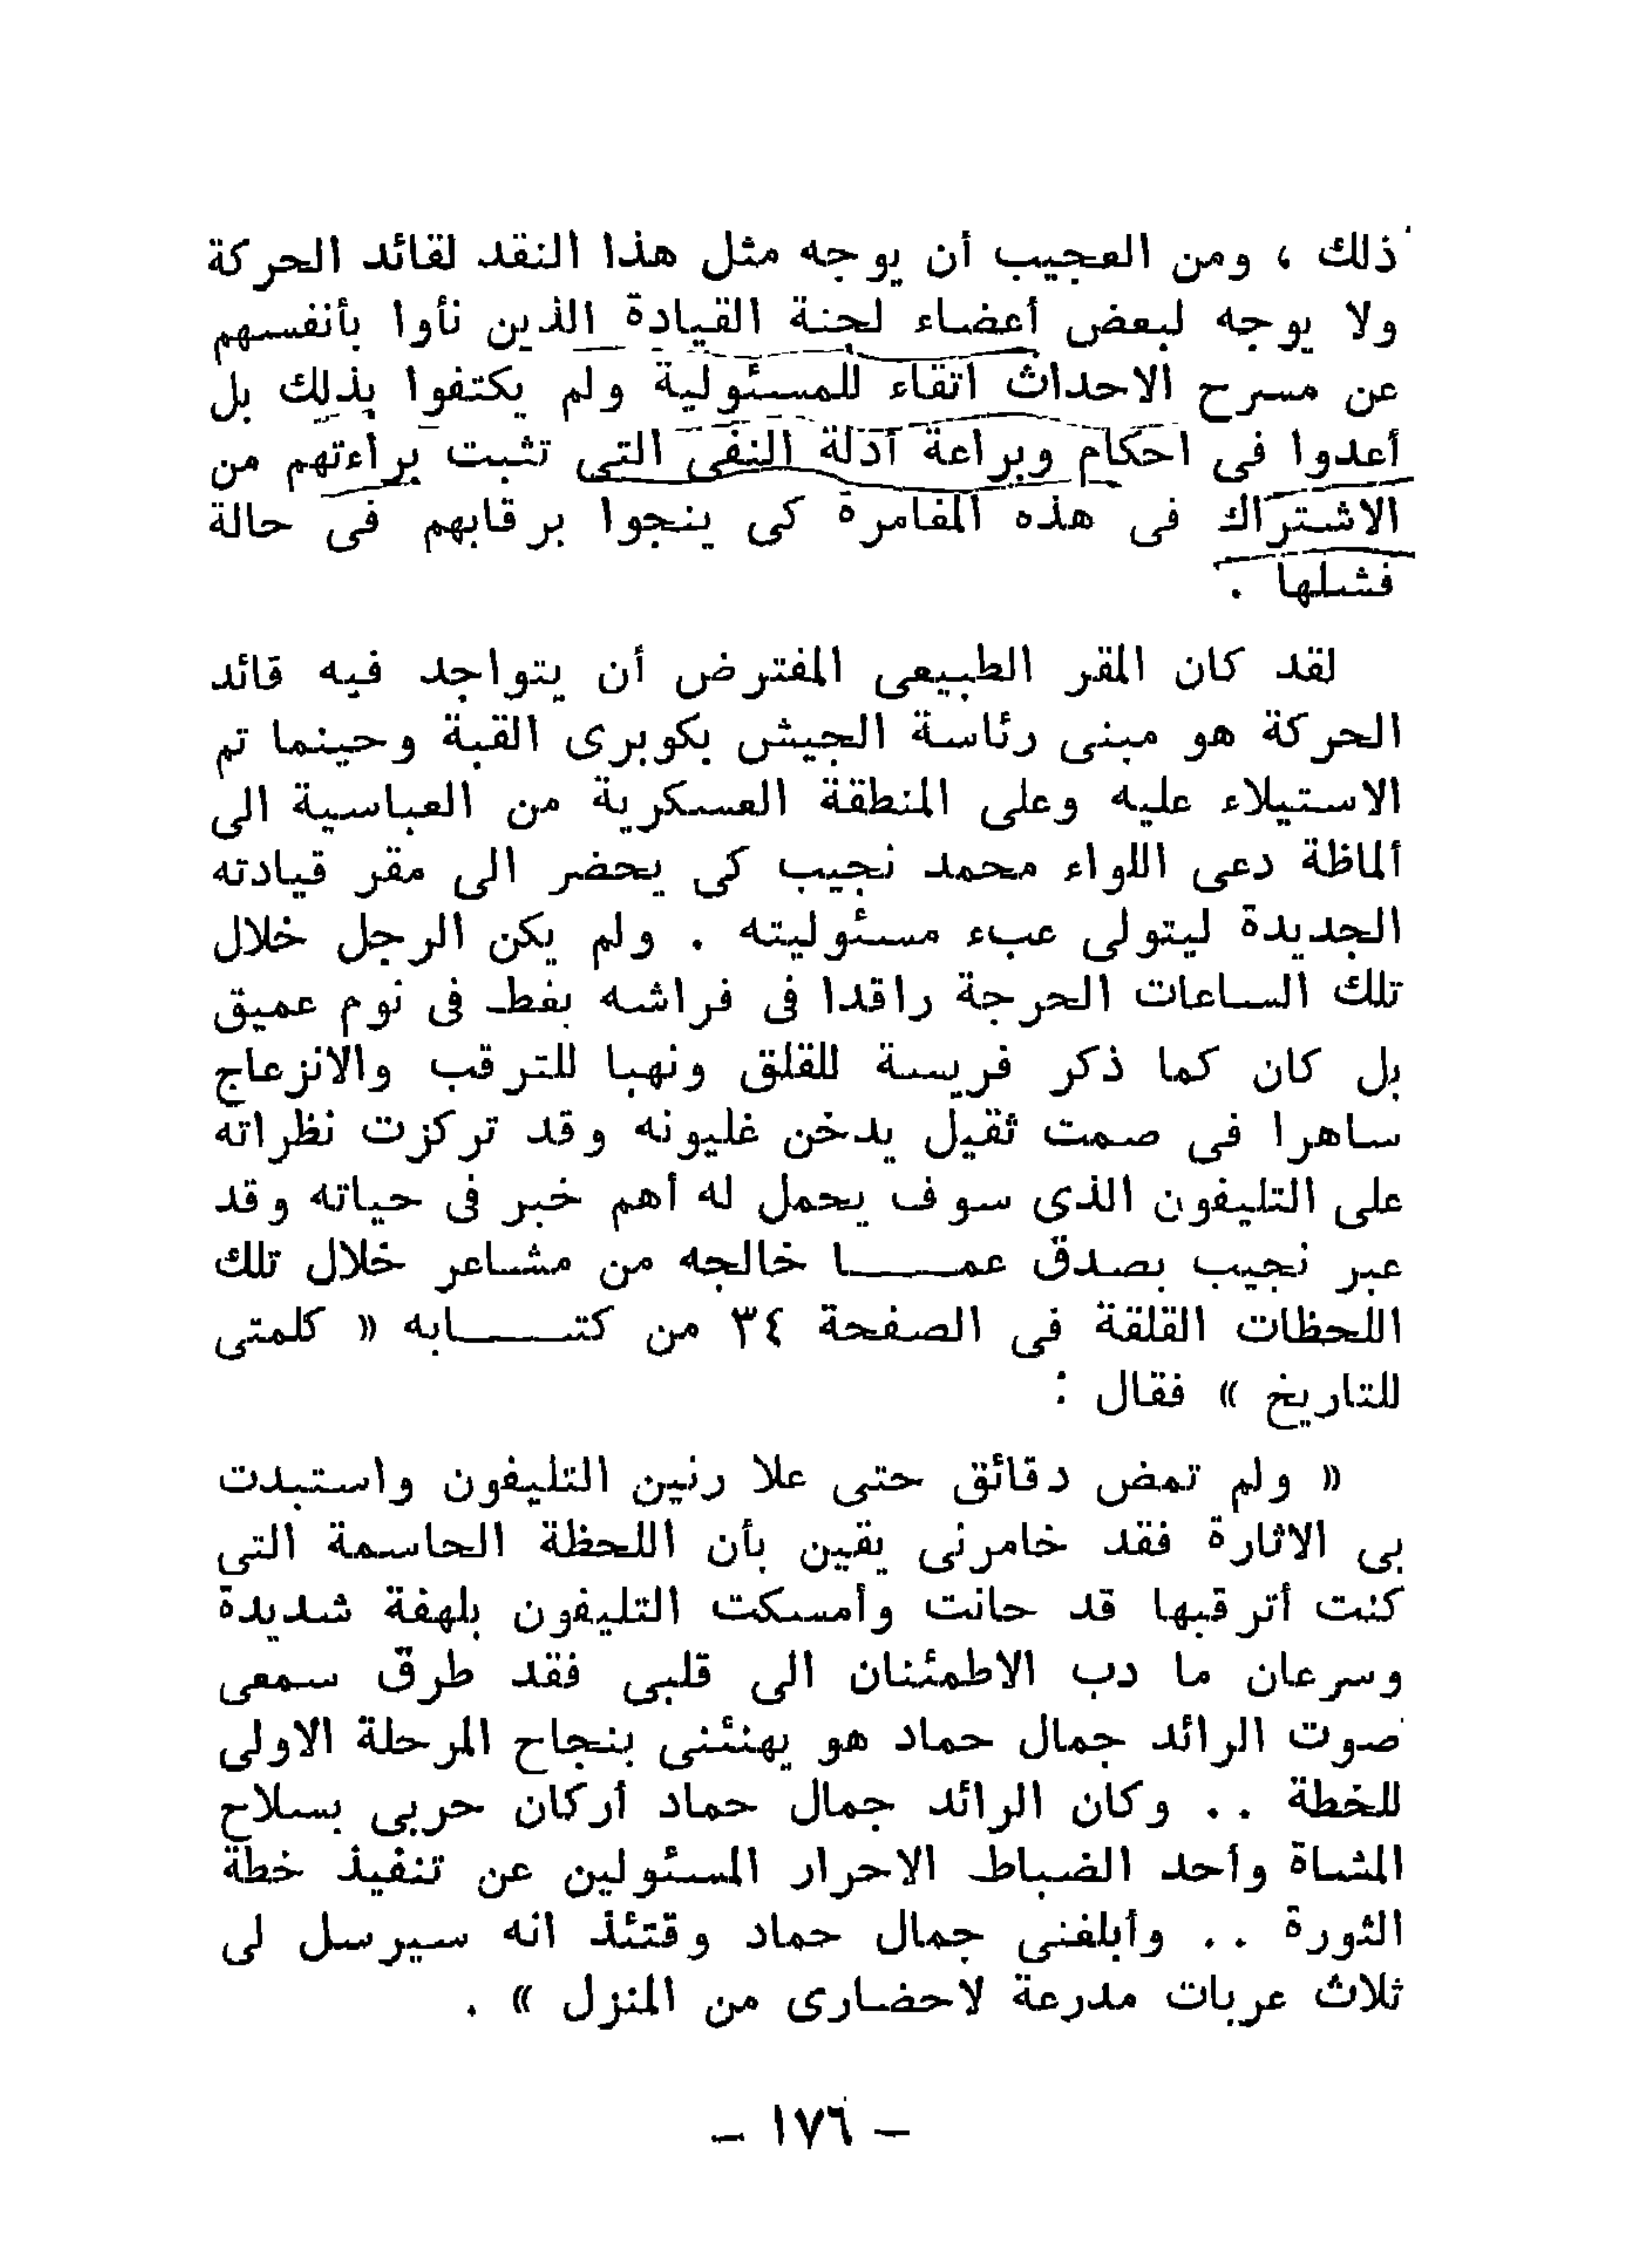 ذلك ، ومن العجيب أن يوجه مثل هذا النقد لقائد الحركة
ولا يوجه لبعض أعضاء لجنة القيادة الذين نأوا بأنفسهم
عن مسرح الاحداث اتقاء للمسئولية ولم يكتفوا بذلك بل
أعدوا فى احكام وبراعة أدلة النفى التى تثبت براءتهم من
الاشتراك فى هذه المغامرة كى ينجوا برقابهم فى حالة
فشلها .
لقد كان المقر الطبيعى المفترض أن يتواجد فيه قائد
الحركة هو مبنى رئاسة الجيش بكوبرى القبة وحينما تم
الاستيلاء عليه وعلى المنطقة العسكرية من العباسية الى
ألماظة دعى اللواء محمد نجيب كى يحضر الى مقر قيادته
الجديدة ليتولى عبء مسئوليته . ولم يكن الرجل خلال
تلك الساعات الحرجة راقدا فى فراشه يغط فى نوم عميق
بل كان كما ذكر فريسة للقلق ونهبا للترقب والانزعاج
ساهرا فى صمت ثقيل يدخن غليونه وقد تركزت نظراته
على التليفون الذى سوف يحمل له أهم خبر فى حياته وقد
عبر نجيب بصدق عمـــا خالجه من مشاعر خلال تلك
اللحظات القلقة فى الصفحة ٣٤ من كتـــابه « كلمتى
للتاريخ » فقال :
« ولم تمض دقائق حتى علا رنين التليفون واستبدت
بى الاثارة فقد خامرنى يقين بأن اللحظة الحاسمة التى
كنت أترقبها قد حانت وأمسكت التليفون بلهفة شديدة
وسرعان ما دب الاطمئنان الى قلبى فقد طرق سمعى
صوت الرائد جمال حماد هو يهنئنى بنجاح المرحلة الاولى
للخطة .. وكان الرائد جمال حماد أركان حربى بسلاح
المشاة وأحد الضباط الاحرار المسئولين عن تنفيذ خطة
الثورة .. وأبلغنى جمال حماد وقتئذ انه سيرسل لى
ثلاث عربات مدرعة لاحضارى من المنزل » .
– ١٧٦ –